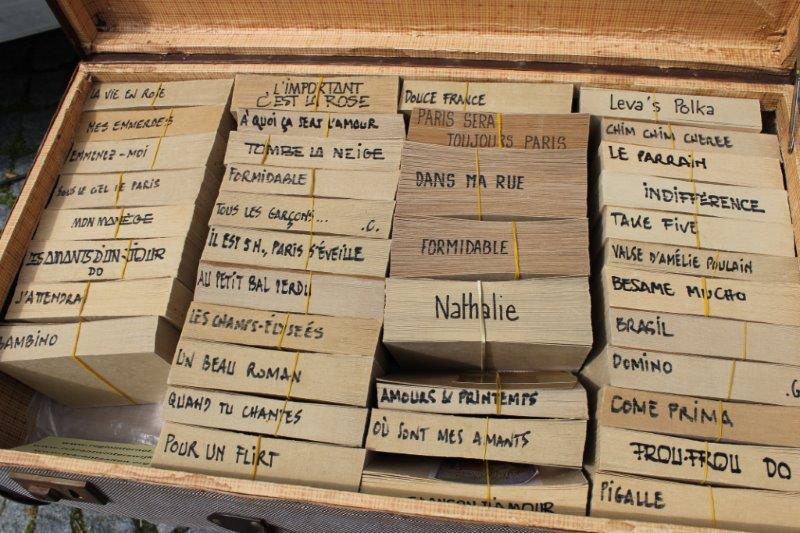 LA VIE EN ROSE
MES EMMERDES
EMMENEZ-MOI
SOUS LE CIEL DE PARIS
MON MANÈGE
LES AMANTS D'UN JOUR
DO
J'ATTENDRAI
BAMBINO
L'IMPORTANT
C'EST LA ROSE
À QUOI ÇA SERT L'AMOUR
TOMBE LA NEIGE
FORMIDABLE
TOUS LES GARÇONS... .C.
IL EST 5H, PARIS S'ÉVEILLE
AU PETIT BAL PERDU
LES CHAMPS-ÉLYSÉES
UN BEAU ROMAN
QUAND TU CHANTES
POUR UN FLIRT
DOUCE FRANCE
PARIS SERA
TOUJOURS PARIS
DANS MA RUE
FORMIDABLE
Nathalie
AMOURS & PRINTEMPS
OÙ SONT MES AMANTS
D'AMOUR
Leva's Polka
CHIM CHIM CHEREE
LE PARRAIN
INDIFFÉRENCE
TAKE FIVE
VALSE D'AMÉLIE POULAIN
BESAME MUCHO
BRASIL
DOMINO .G
COME PRIMA
FROU-FROU DO
PIGALLE